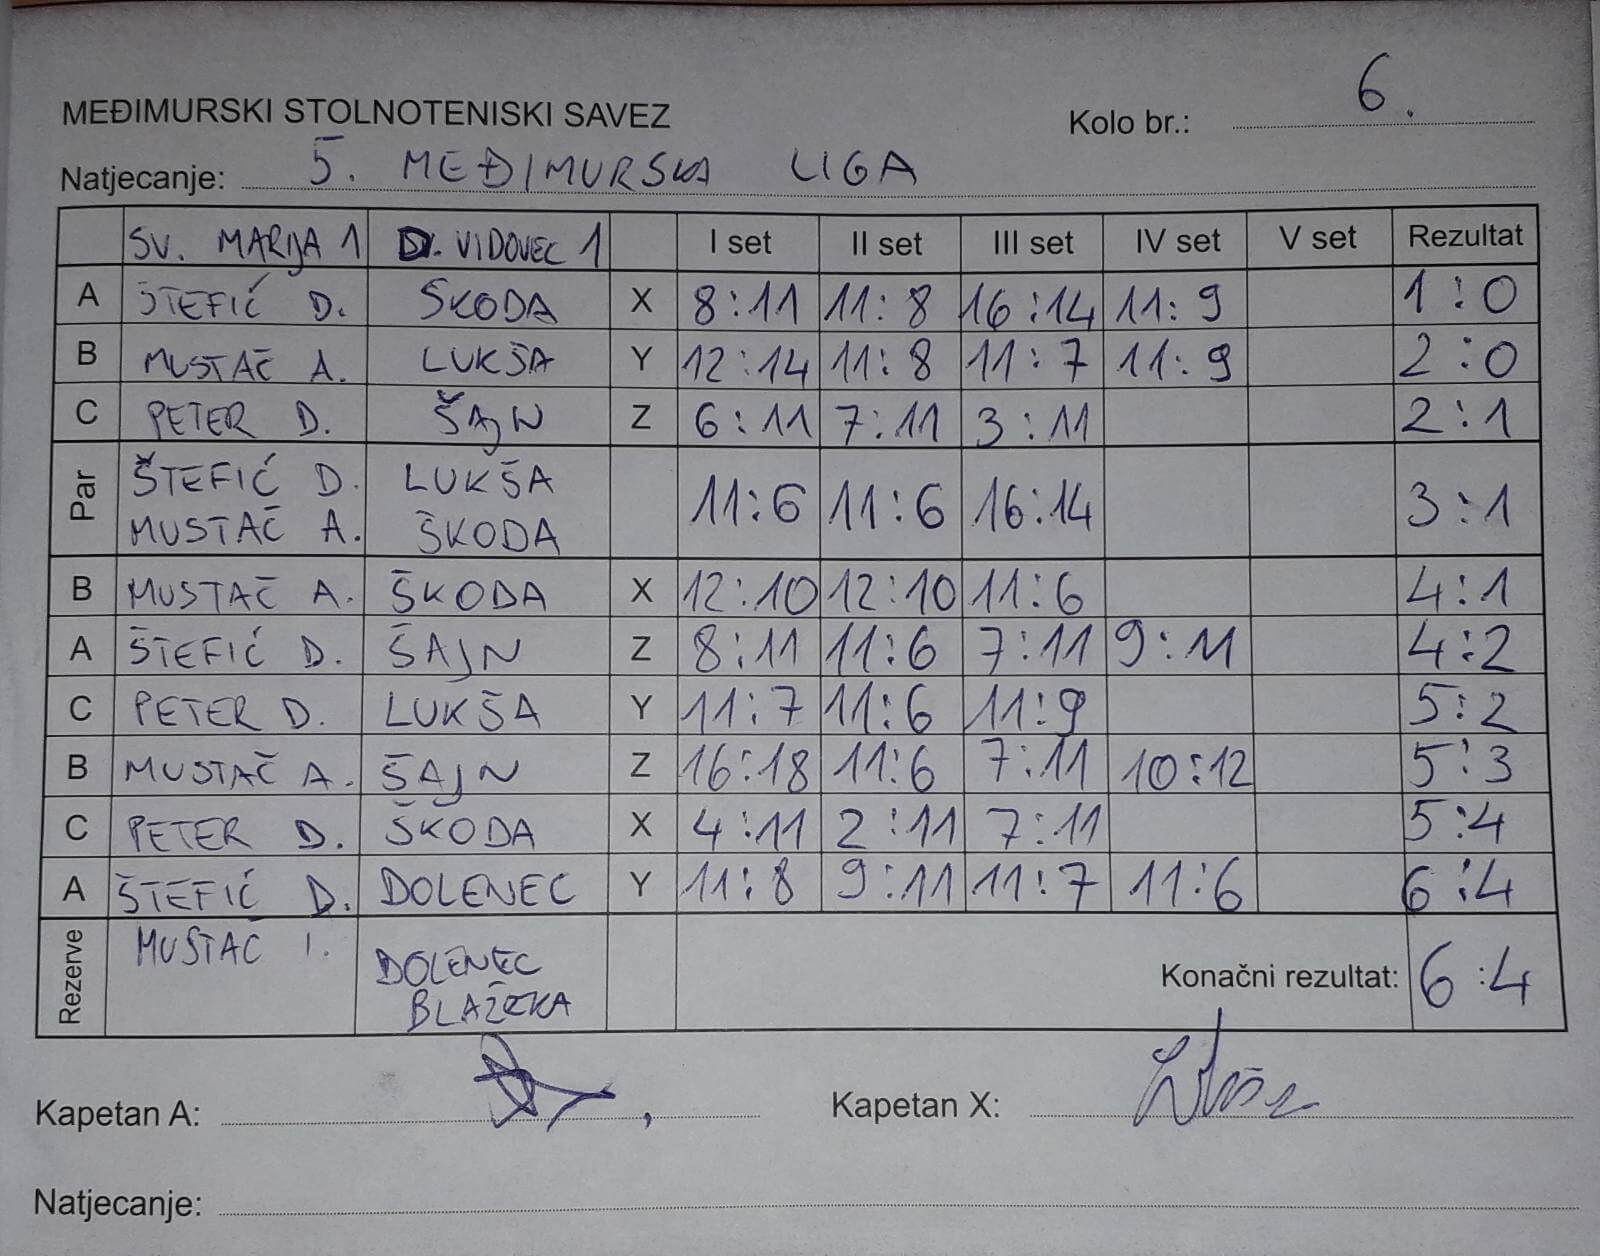 6.
MEĐIMURSKI STOLNOTENISKI SAVEZ Kolo br.:
Natjecanje: 5. MEĐIMURSKA LIGA
SV. MARIJA 1 D. VIDOVEC 1 I set II set III set IV set V set Rezultat
A ŠTEFIĆ D. ŠKODA X 8:11 11:8 16:14 11:9 1:0
B MUSTAČ A. LUKŠA Y 12:14 11:8 11:7 11:9 2:0
C PETER D. ŠAJN Z 6:11 7:11 3:11 2:1
Par ŠTEFIĆ D. LUKŠA 11:6 11:6 16:14 3:1
MUSTAČ A. ŠKODA
B MUSTAČ A. ŠKODA X 12:10 12:10 11:6 4:1
A ŠTEFIĆ D. ŠAJN Z 8:11 11:6 7:11 9:11 4:2
C PETER D. LUKŠA Y 11:7 11:6 11:9 5:2
B MUSTAČ A. ŠAJN Z 16:18 11:6 7:11 10:12 5:3
C PETER D. ŠKODA X 4:11 2:11 7:11 5:4
A ŠTEFIĆ D. DOLENEC Y 11:8 9:11 11:7 11:6 6:4
Rezerve MUSTAČ I. DOLENEC Konačni rezultat: 6:4
BLAŽEKA
Kapetan A: Kapetan X:
Natjecanje: